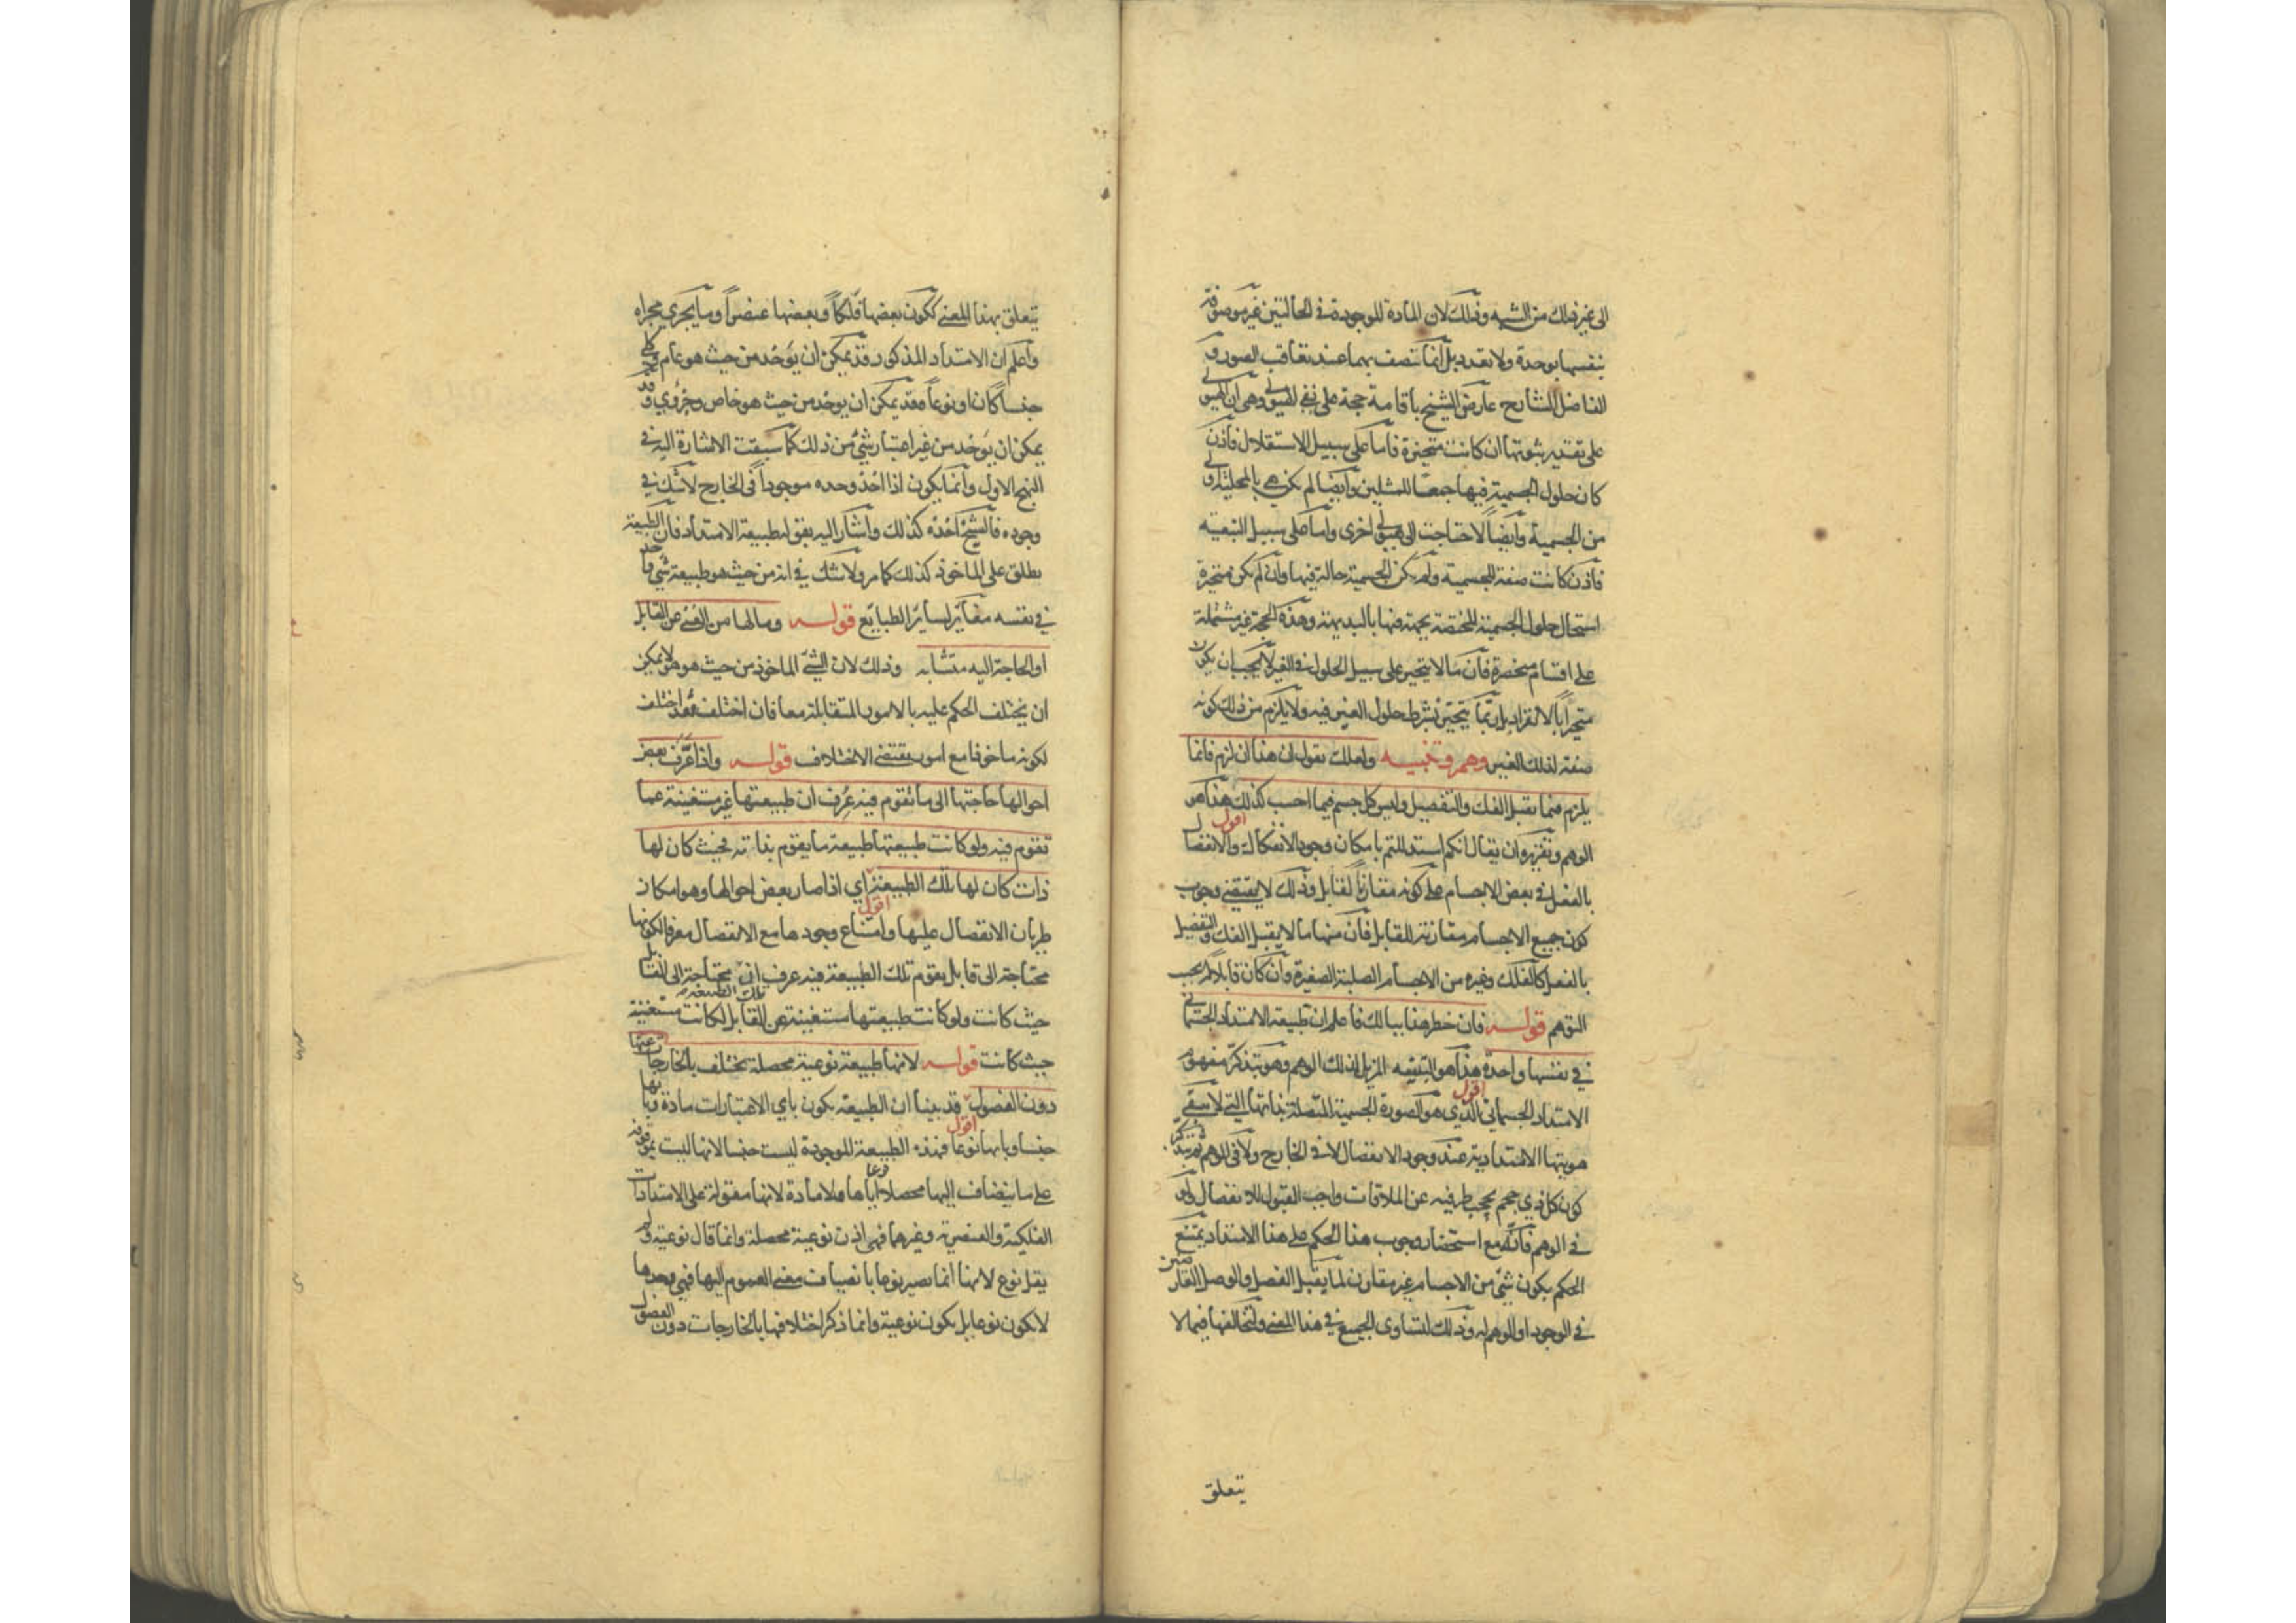 الى غير ذلك من الشبه وذلك لان المادة الموجودة في الحالتين غير موصوفة
بنفسها بوحدة ولا تعدد بل انما تتصف بهما عند تعاقب الصور و
الفاضل الشارح عارض الشيخ باقامة حجة على نفي الهيولى وهي ان الهيولى
على تقدير ثبوتها ان كانت متحيزة فاما على سبيل الاستقلال فاذن
كان حلول الجسمية فيها جمعا للمثلين وايضا لم يكن هي بالمحلية اولى
من الجسمية وايضا لاحتاجت الى هيولى اخرى واما على سبيل التبعية
فاذن كانت صفة للجسمية ولم يكن الجسمية حالة فيها وان لم يكن متحيزة
استحال حلول الجسمية المختصة بجهة فيها بالبديهة وهذه الحجة غير مشتملة
على اقسام منحصرة فان ما لا يتحيز على سبيل الحلول في الغير لا يجب ان يكون
متحيزا بالانفراد بل ربما يتحيز بشرط حلول الغير فيه ولا يلزم من ذلك كونه
صفة لذلك الغير وهم وتنبيه ولعلك تقول ان هذا ان لزم فانما
يلزم فيما يقبل الفك والتفصيل وليس كل جسم فيما احسب كذلك اقول هذا هو
الوهم وتقريره ان يقال انكم استدللتم بامكان وجود الانفكاك والانفصال
بالفعل في بعض الاجسام على كونه مقارنا لقابل وذلك لا يقتضي وجوب
كون جميع الاجسام مقارنة للقابل فان منها ما لا يقبل الفك والتفصيل
بالفعل كالفلك وغيره من الاجسام الصلبة الصغيرة وان كان قابلا لهما بحسب
التوهم قوله فان خطر هذا ببالك فاعلم ان طبيعة الامتداد الجسماني
في نفسها واحدة اقول هذا هو التنبيه المزيل لذلك الوهم وهو بتذكر مفهوم
الامتداد الجسماني الذي هو الصورة الجسمية المتصلة بذاتها التي لا تبقى
هويتها الامتدادية عند وجود الانفصال لا في الخارج ولا في الوهم ثم بتذكر
كون كل ذي حجم يحجب طرفيه عن الملاقات واجب القبول للانفصال ولو
في الوهم فانه مع استحضار وجوب هذا الحكم على هذا الامتداد يمتنع
الحكم بكون شئ من الاجسام غير مقارن لما يقبل الفصل والوصل العارضين
في الوجود او الوهم له وذلك لتساوى الجميع في هذا المعنى وتخالفها فيما لا
يتعلق
يتعلق بهذا المعنى ككون بعضها فلكا وبعضها عنصرا وما يجري مجراه
واعلم ان الامتداد المذكور قد يمكن ان يوخذ من حيث هو عام وكلي
جنسا كان او نوعا وقد يمكن ان يوخذ من حيث هو خاص وجزوي وقد
يمكن ان يوخذ من غير اعتبار شئ من ذلك كما سبقت الاشارة اليه في
النهج الاول وانما يكون اذا اخذ وحده موجودا في الخارج لا شك في
وجوده فالشيخ اخذه كذلك واشار اليه بقوله طبيعة الامتداد فان الطبيعة
تطلق على الماخوذ كذلك كما مر ولا شك في انه من حيث هو طبيعة شئ واحد
في نفسه مغاير لساير الطبايع قوله وما لها من الغنى عن القابل
او الحاجة اليه متشابه وذلك لان الشئ الماخوذ من حيث هو هو لا يمكن
ان يختلف الحكم عليه بالامور المتقابلة معا فان اختلف فقد اختلف
لكونه ماخوذا مع امور يقتضي الاختلاف قوله واذا عرف بعض
احوالها حاجتها الى ما تقوم فيه عرف ان طبيعتها غير مستغنية عما
تقوم فيه ولو كانت طبيعتها طبيعة ما يقوم بذاته فحيث كان لها
ذات كان لها تلك الطبيعة اقول اي اذا صار بعض احوالها وهو امكان
طريان الانفصال عليها وامتناع وجودها مع الانفصال معرفا لكونها
محتاجة الى قابل يقوم تلك الطبيعة فيه عرف ان تلك الطبيعة محتاجة الى القابل
حيث كانت ولو كانت طبيعتها مستغنية عن القابل لكانت مستغنية عنها
حيث كانت قوله لانها طبيعة نوعية محصلة تختلف بالخارجات
دون الفصول اقول قد بينا ان الطبيعة يكون باي الاعتبارات مادة وبايها
جنسا وبايها نوعا فهذه الطبيعة الموجودة ليست جنسا لانها ليست
على ما ينضاف اليها محصلا اياها نوعا ولا مادة لانها مقولة على الامتدادات
الفلكية والعنصرية وغيرهما فهي اذن نوعية محصلة وانما قال نوعية ولم
يقل نوع لانها انما تصير نوعا بانضياف معنى العموم اليها فهي وحدها
لا يكون نوعا بل يكون نوعية وانما ذكر اختلافها بالخارجات دون الفصول